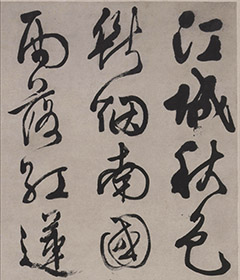 江城秋色
烟南國
雨落紅蓮